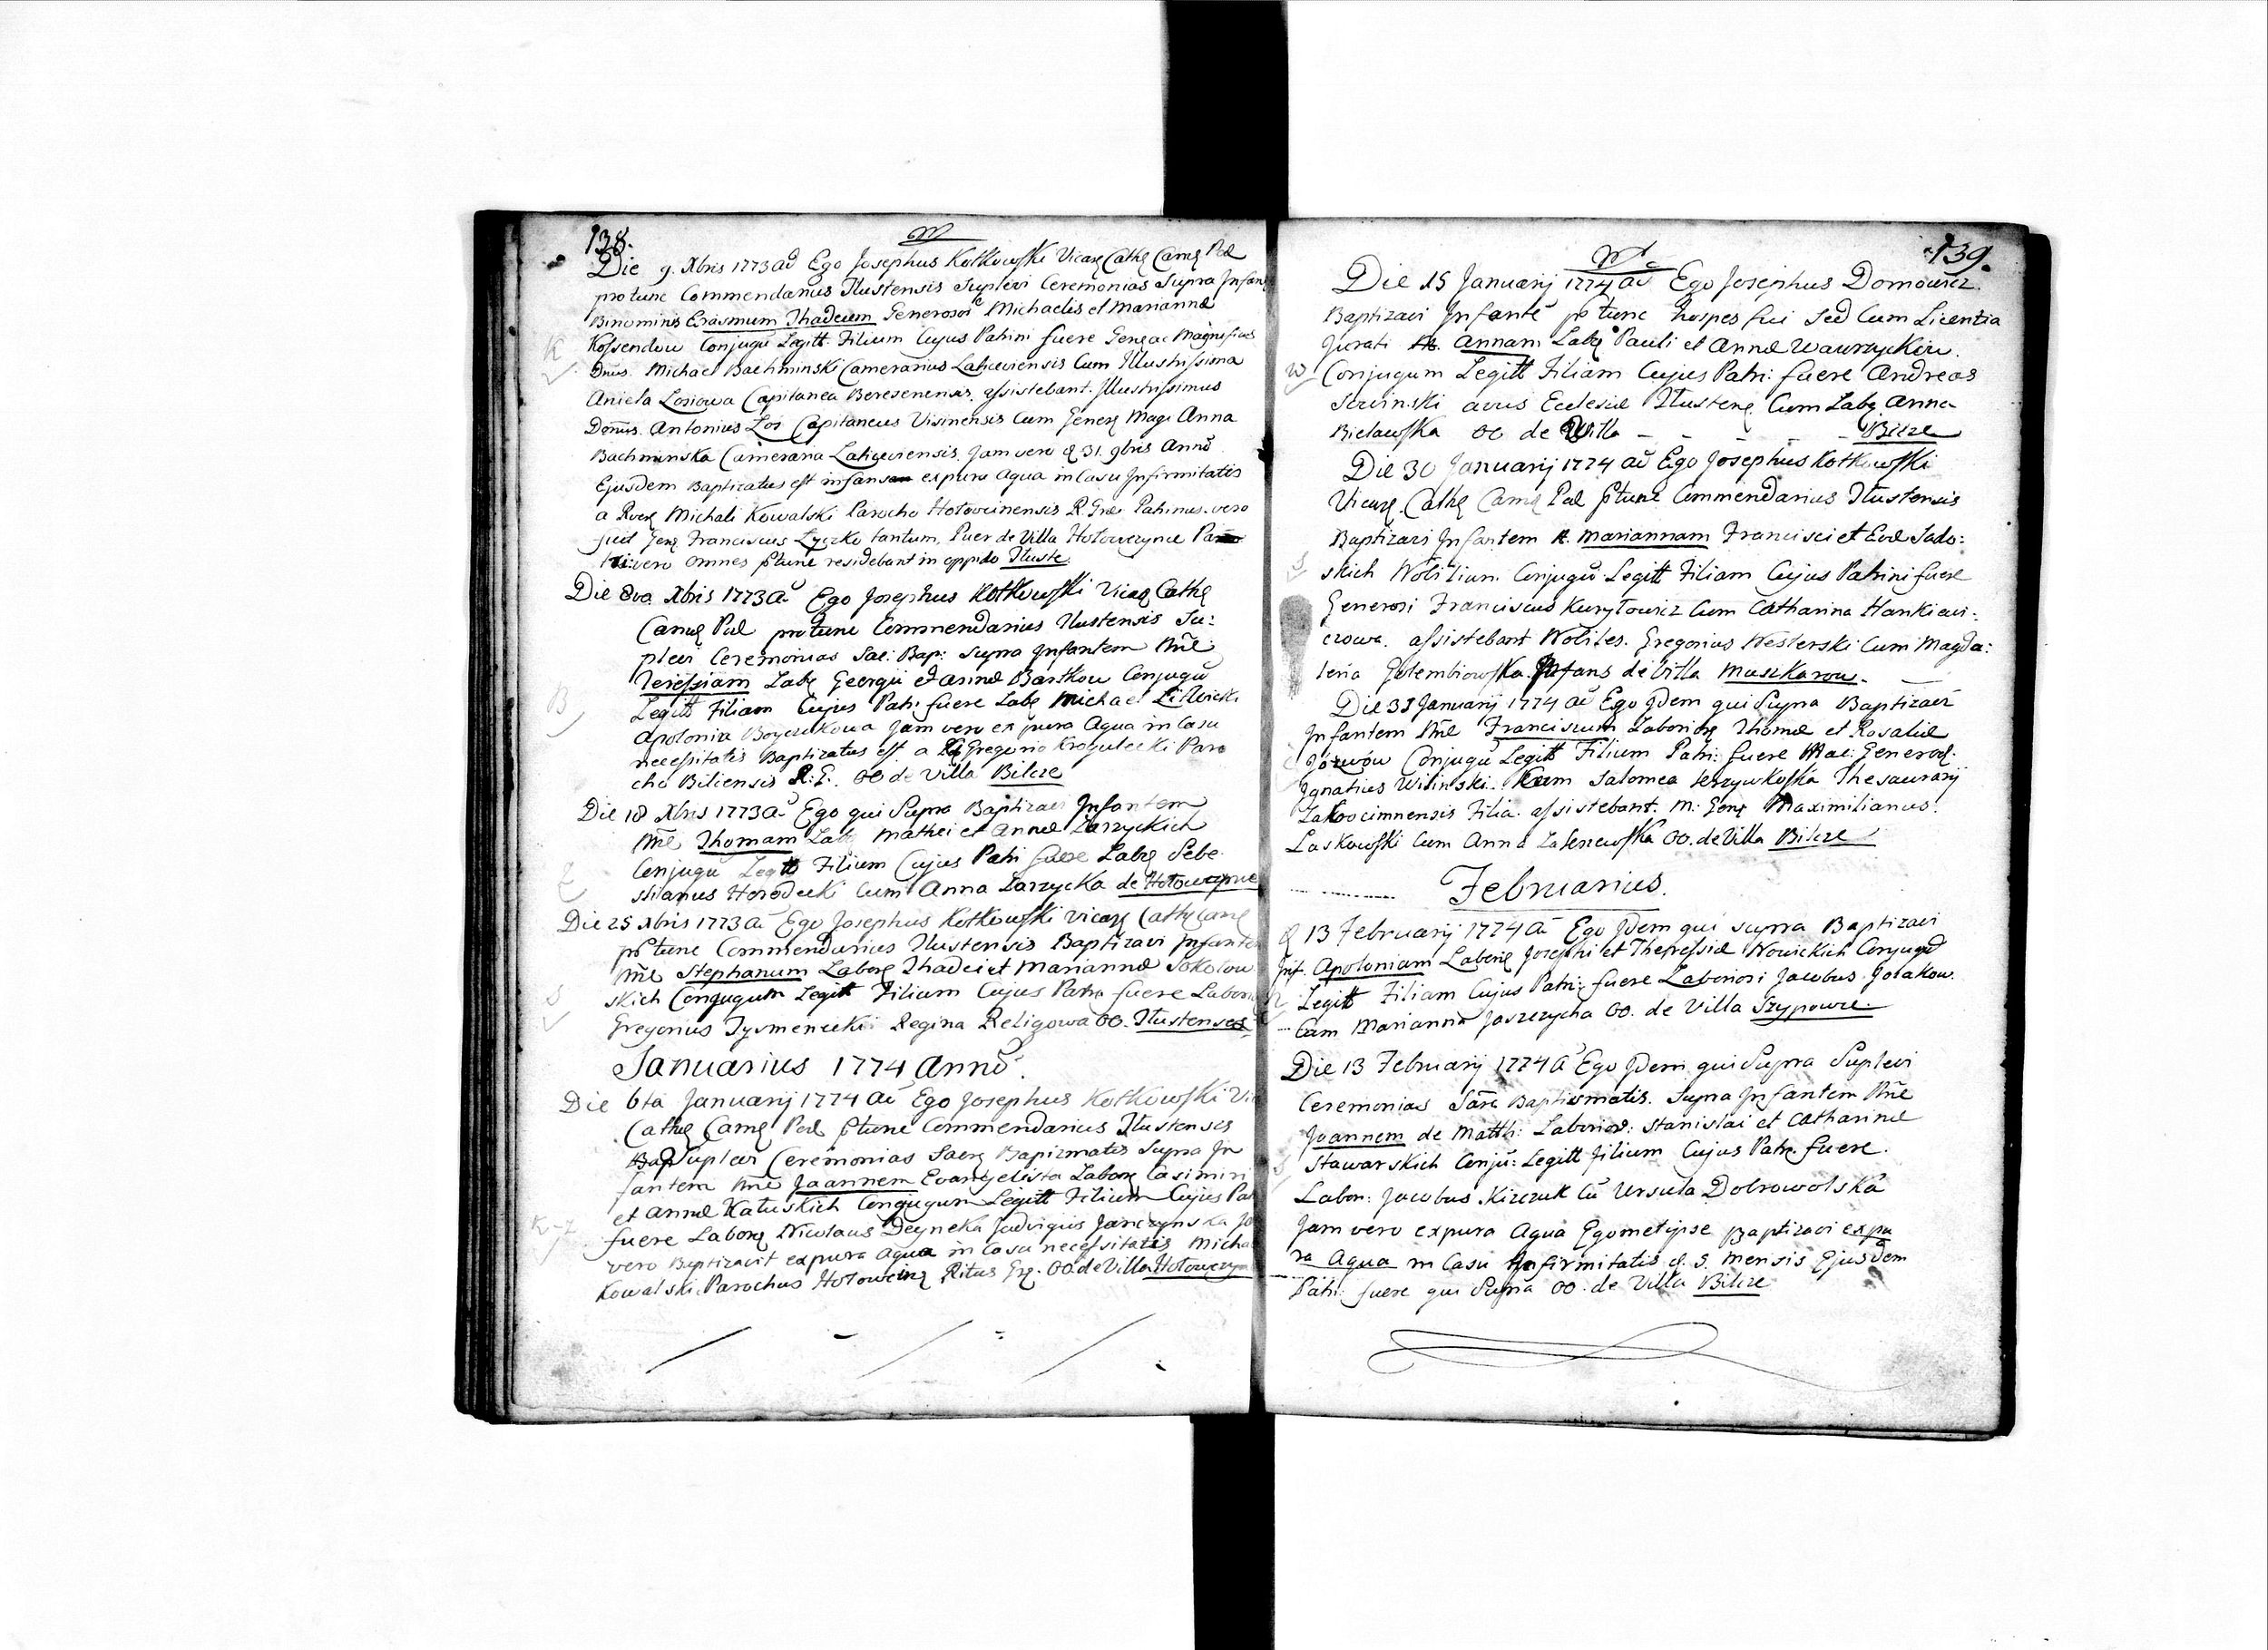 138.
M
Die 9. Xbris 1773 ad Ego Josephus Kotkowski Vicarę Cathę Camę Pod
pro tunc Commendarius Tlustensis Suplevi Ceremonias Supra Infan
Binominis Erasmum Thadeum Generosor Michaelis et Mariannæ
Kossendow Conjugū Legitt. Filium Cujus Patrini fuere Genę ac Magnificus
Dnus. Michael Bachminski Camerarius Laticviensis Cum Illustrissima
Aniela Losiowa Capitanea Beresenensis, assistebant. Illustrissimus
Domūs. Antonius Los Capitaneus Visinensis Cum Generę Mage Anna
Bachminska Camerana Laticviensis. Jam vero d 31. 9bris Annō
Ejusdem Baptizatus est infans ex pura Aqua in Casu Infirmitatis
a Rverę Michali Kowalski Parocho Hotowcinensis R. Græ Patrinus. vero
fuit Genę Franciscus Lyszko tantum, Puer de Villa Hotowczynce
vero omnes ptunc residebant in oppido Tluste
Die 8va Xbris 1773 A Ego Josephus Kotkowski Vicarę Cathę
Camę Pod pro tunc Commendarius Tlustensis Su:
plevi Ceremonias Sac: Bap: Supra Infantem Nnē
Teressiam Labę Georgii et Bartkow Conjugū
Legitt Filiam Cujus Patr: fuere Labę Michael
Apolonia Boyczukowa Jam vero ex pura Aqua in Casu
necessitatis Baptizatus est. a Gregorio Krogulecki Paro
cho Biliensis R: G. OO de Villa Bilcze
Die 18 Xbris 1773 A Ego qui Supra Baptizavi Infantem
Nnē Thomam Lab Mathei et Annæ Zarzyckich
Conjugū Legitt Filium Cujus Patri fuere Labrę Seba
stianus Horodecki Cum Anna Zarzycka de Hotowczynce
Die 25 Xbris 1773 A Ego Josephus Kotkowski Vicarę Cathę Camę
pro tunc Commendarius Tlustensis Baptizavi Infante
Nnē Stephanum Laborę Thadei et Mariannæ Sokolow
skich Conjugum Legitt Filium Cujus Patri fuere Labori
Gregorius Tysmenecki Regina Religowa OO. Tlustenses
Januarius 1774 Annō.
Die 6ta Januarij 1774 ad Ego Josephus Kotkowski Vi
Cathę Camę Pod ptunc Commendarius Tlustensis
Suplevi Ceremonias Sacrę Bapizmatis Supra In
fantem Nnē Joannem Evangelista Laborę Casimiri
et Annæ Katuskich Conjugum Legitt Filium Cujus Pat
fuere Laborę Nicolaus Deyneka Jadvigis Janczynska Ja
vero Baptizavit ex pura Aqua in Casu necessitatis Micha
Kowalski Parochus Hotowcinę Ritus Grę. OO de Villa Hotowczyn
139.
Die 15 Januarij 1774 ad Ego Josephus Domowicz
Baptizavi Infantē pro tunc hospes fui Sed Cum Licentia
Jurati N. Annam Labę Pauli et Annæ Wawrzyckiw
Conjugum Legitt Filiam Cujus Patri: fuere Andreas
Scivinski avus Ecclesiæ Tlustenę Cum Labę Anna
Bielawska OO de Villa - - - - - Bilcze
Die 30 Januarij 1774 ad Ego Josephus Kotkowski
Vicarę. Cathę Camę Pod ptunc Commendarius Tlustensis
Baptizavi Infantem N. Mariannam Francisci et Evæ Sado:
skich Nobilium Conjugū Legitt Filiam Cujus Patrini fuere
Generosi Franciscus Kurylowicz Cum Catharina Hankiewi:
czowa. assistebant Nobiles. Gregorius Westerski Cum Magda:
lena Gotembiowska. Infans de Villa Muszkarow.
Die 31 Januarij 1774 ad Ego Idem qui Supra Baptizavi
Infantem Nnē Franciscum Laboriorę Thomæ et Rosaliæ
Conjugū Legitt Filium Patri: fuere Mac: Generod.
Ignatius Wilinski. Cum Salomea Thesaurarij
Zakroocimnensis Filia. assistebant. M: Genę Maximilianus
Laskowski Cum Anna OO. de Villa Bilcze
Februarius.
d 13 Februarij 1774 A Ego Idem qui supra Baptizavi
Inf. Apoloniam Laborię Josephi et Theressiæ Nowickich Conjugū
Legitt Filiam Cujus Patri: fuere Laboriosi Jacobus Golakow.
Cum Marianna Jaszczycha OO. de Villa Szypowce.
Die 13 Februarij 1774 A Ego Idem qui Supra Suplevi
Ceremonias Baptismatis. Supra Infantem Nnē
Joannem de Matth: Laboriod: Stanislai et Catharinæ
Stawarskich Conju: Legitt filium Cujus Patri. fuere.
Labor: Jacobus Kirczuk Cū Ursula Dobrowolska
Jam vero ex pura Aqua Egometipse Baptizavi ex pu
ra Aqua in Casu Infirmitatis d. 5. mensis Ejusdem
Patri: fuere qui Supra OO. de Villa Bilcze